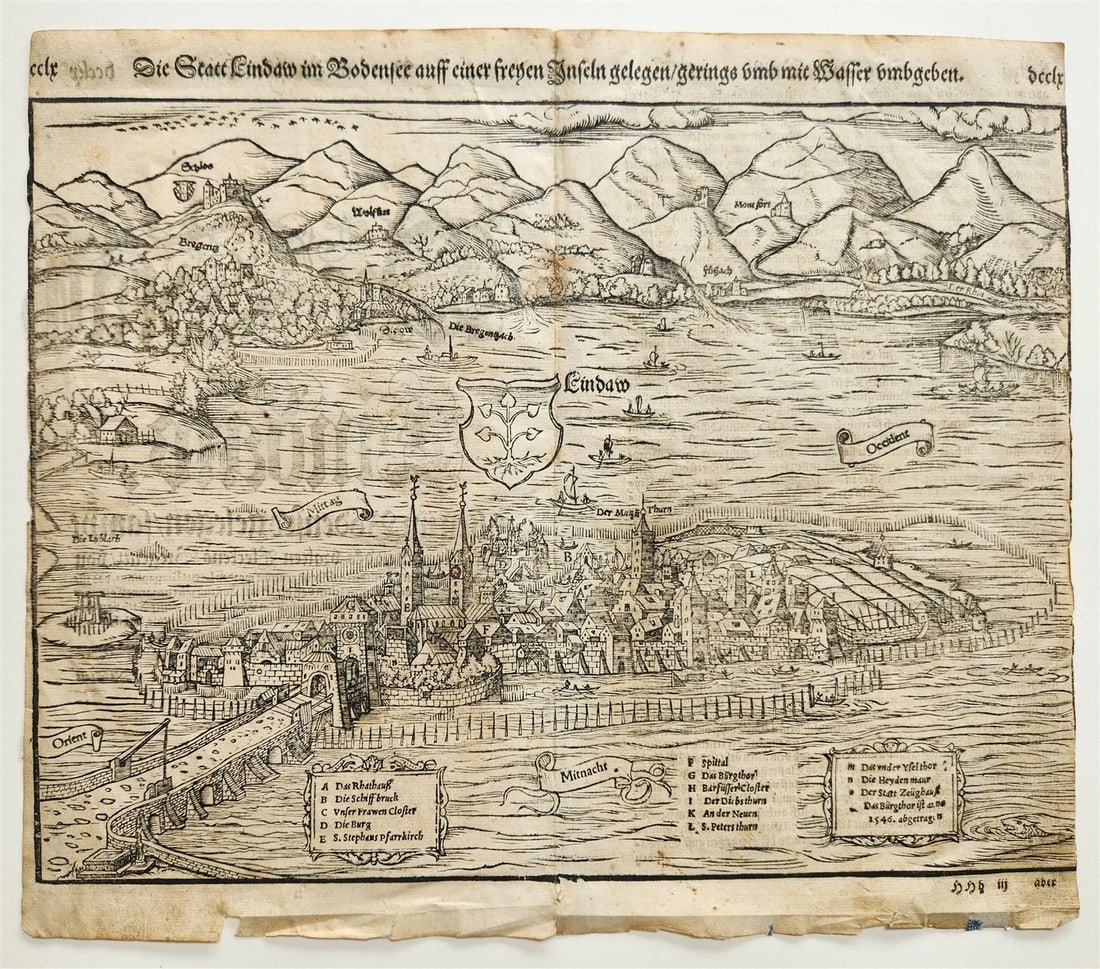 cclx
Die Statt Lindaw im Bodensee auff einer freyen Inseln gelegen/gerings vmb mit Wasser vmbgeben.
dcclx
Schlos
Wolfurt
Montfort
Bregentz
Fussach
Die Bregentzach
Lindaw
Occident
Mittag
Der Mang Thurn
Die Laiblach
B
F
Orient
Mitnacht
A Das Rhathauß
B Die Schiffbruck
C Vnser Frawen Closter
D Die Burg
E S. Stephans Pfarrkirch
F Spittal
G Das Bürgthor
H Barfüsser Closter
I Der Diebsthurn
K An der Neuen
L S. Peters thurn
M Das vnder Yselthor
N Die Heyden maur
O Der Statt Zeüghauß
Das Bürgthor ist anno
1546. abgetragen
HHh iij aber